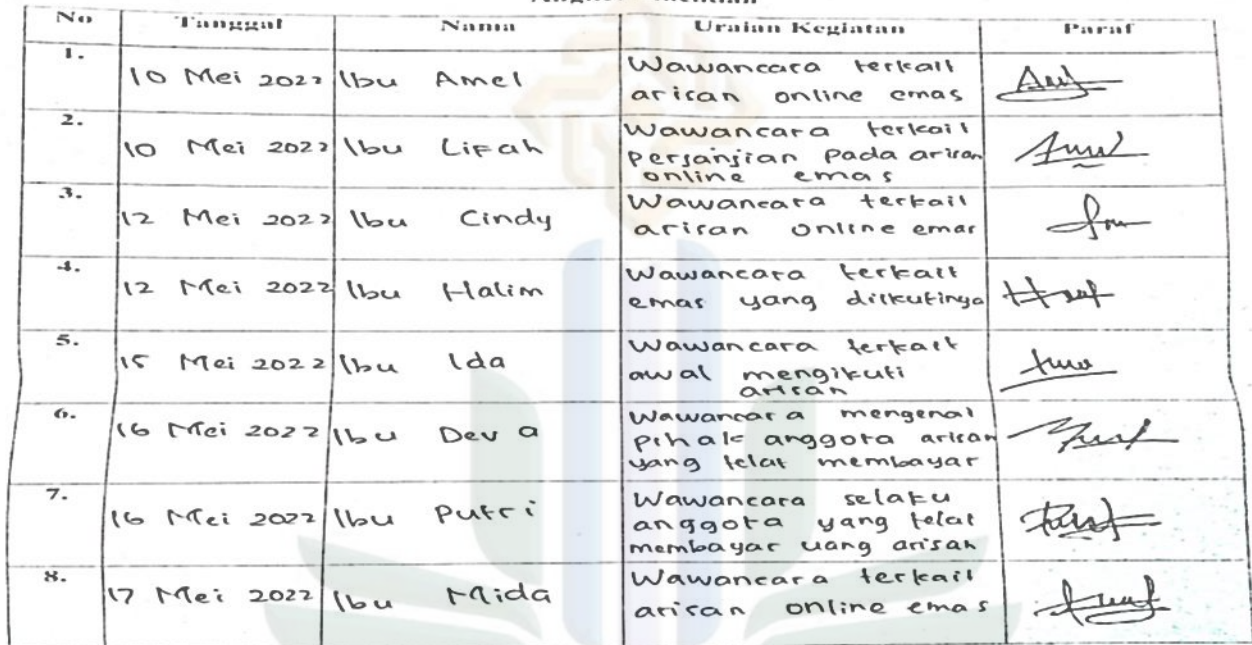 No Tanggal Nama Uraian Kegiatan Paraf
1.
10 Mei 2022 Ibu Amel Wawancara terkait
arisan online emas
2.
10 Mei 2022 Ibu Lifah Wawancara terkait
perjanjian pada arisan
online emas
3.
12 Mei 2022 Ibu Cindy Wawancara terkait
arisan online emas
4.
12 Mei 2022 Ibu Halim Wawancara terkait
emas yang diikutinya
5.
15 Mei 2022 Ibu Ida Wawancara terkait
awal mengikuti
arisan
6.
16 Mei 2022 Ibu Deva Wawancara mengenai
pihak anggota arisan
yang telat membayar
7.
16 Mei 2022 Ibu Putri Wawancara selaku
anggota yang telat
membayar uang arisan
8.
17 Mei 2022 Ibu Mida Wawancara terkait
arisan online emas